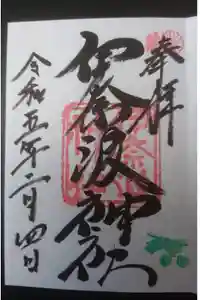 奉拝
伊奈波神社
令和五年二月四日